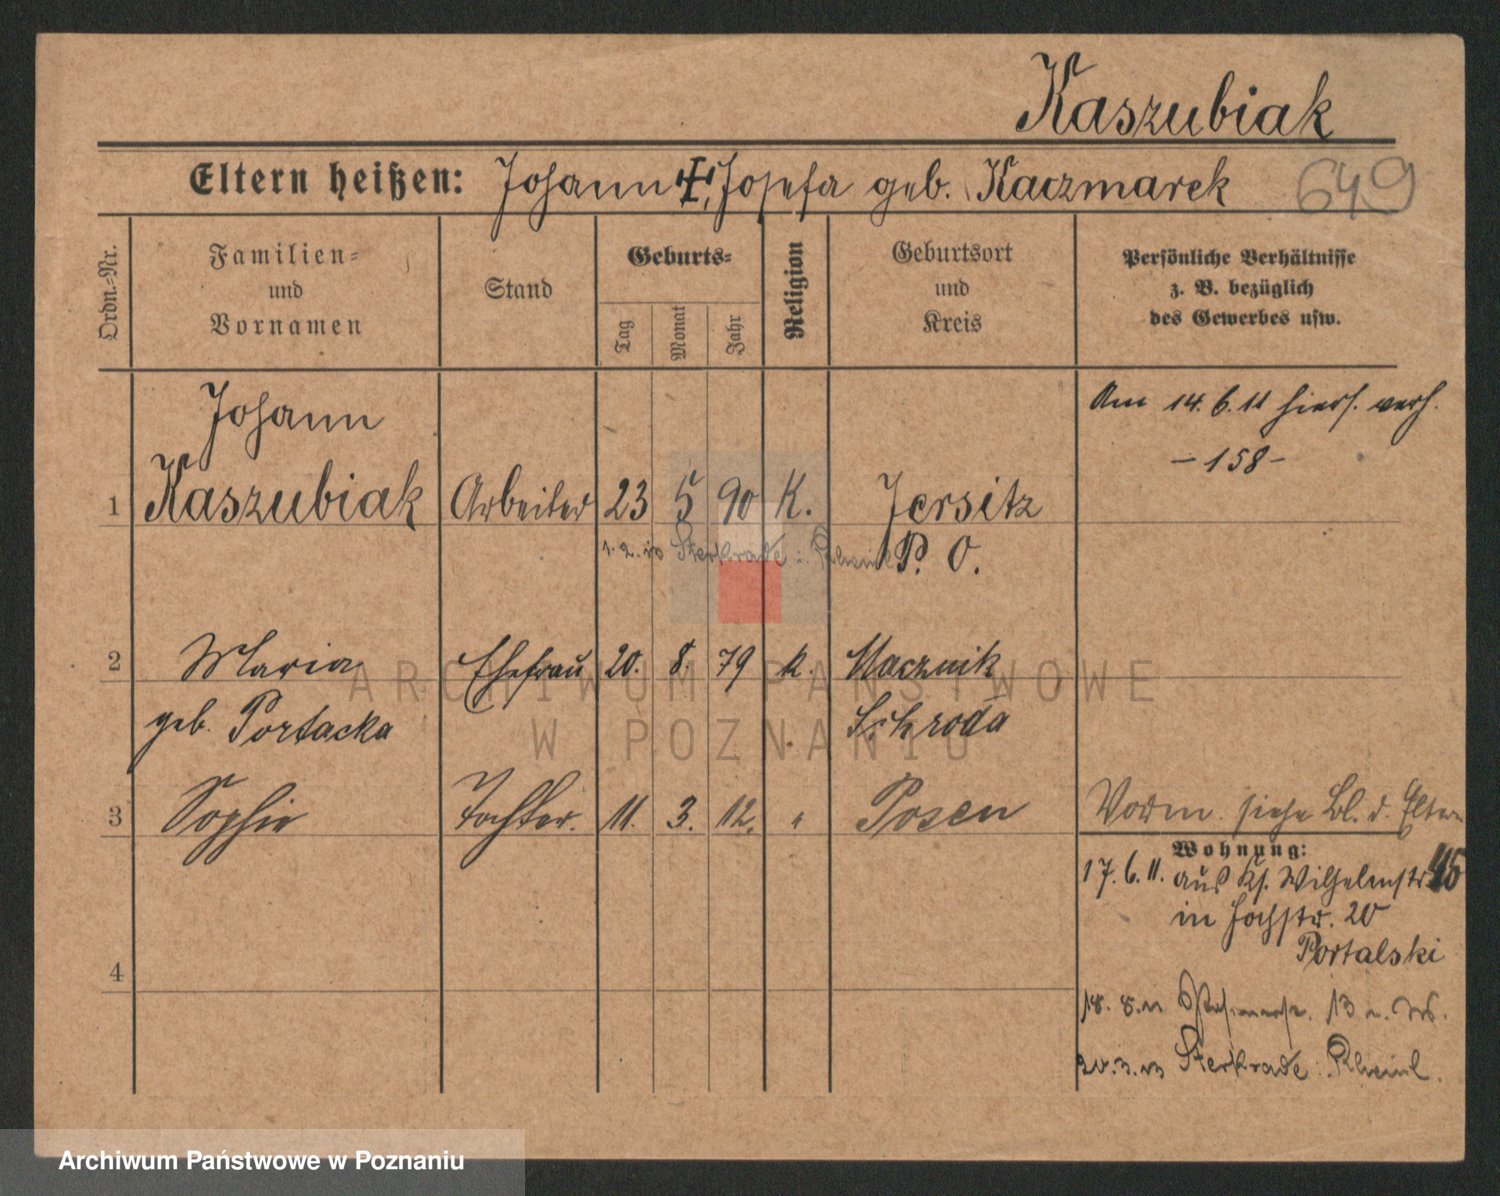 Kaszubiak
Eltern heißen: Johann ✝, Josefa geb. Kaczmarek
649
Ordn.-Nr.
Familien-
und
Vornamen
Stand
Geburts-
Tag
Monat
Jahr
Religion
Geburtsort
und
Kreis
Persönliche Verhältnisse
z. B. bezüglich
des Gewerbes usw.
Johann
1 Kaszubiak Arbeiter 23 5 90 K. Jersitz
P. O.
Am 14. 6. 11 hiers. verh.
- 158 -
1. 2. 13 Sterkrade i. Rheinl
2 Maria Ehefrau 20. 8. 79 k. Macznik
geb. Portacka Schroda
3 Sophie Tochter. 11. 3. 12. " Posen
Vorm. siehe Bl. d. Eltern
Wohnung:
17. 6. 11. aus Ks. Wilhelmstr. 45
in Hochstr. 20
Portalski
4
18. 8. 11 13
20. 3. 13 Sterkrade Rheinl.
ARCHIWUM PAŃSTWOWE
W POZNANIU
Archiwum Państwowe w Poznaniu